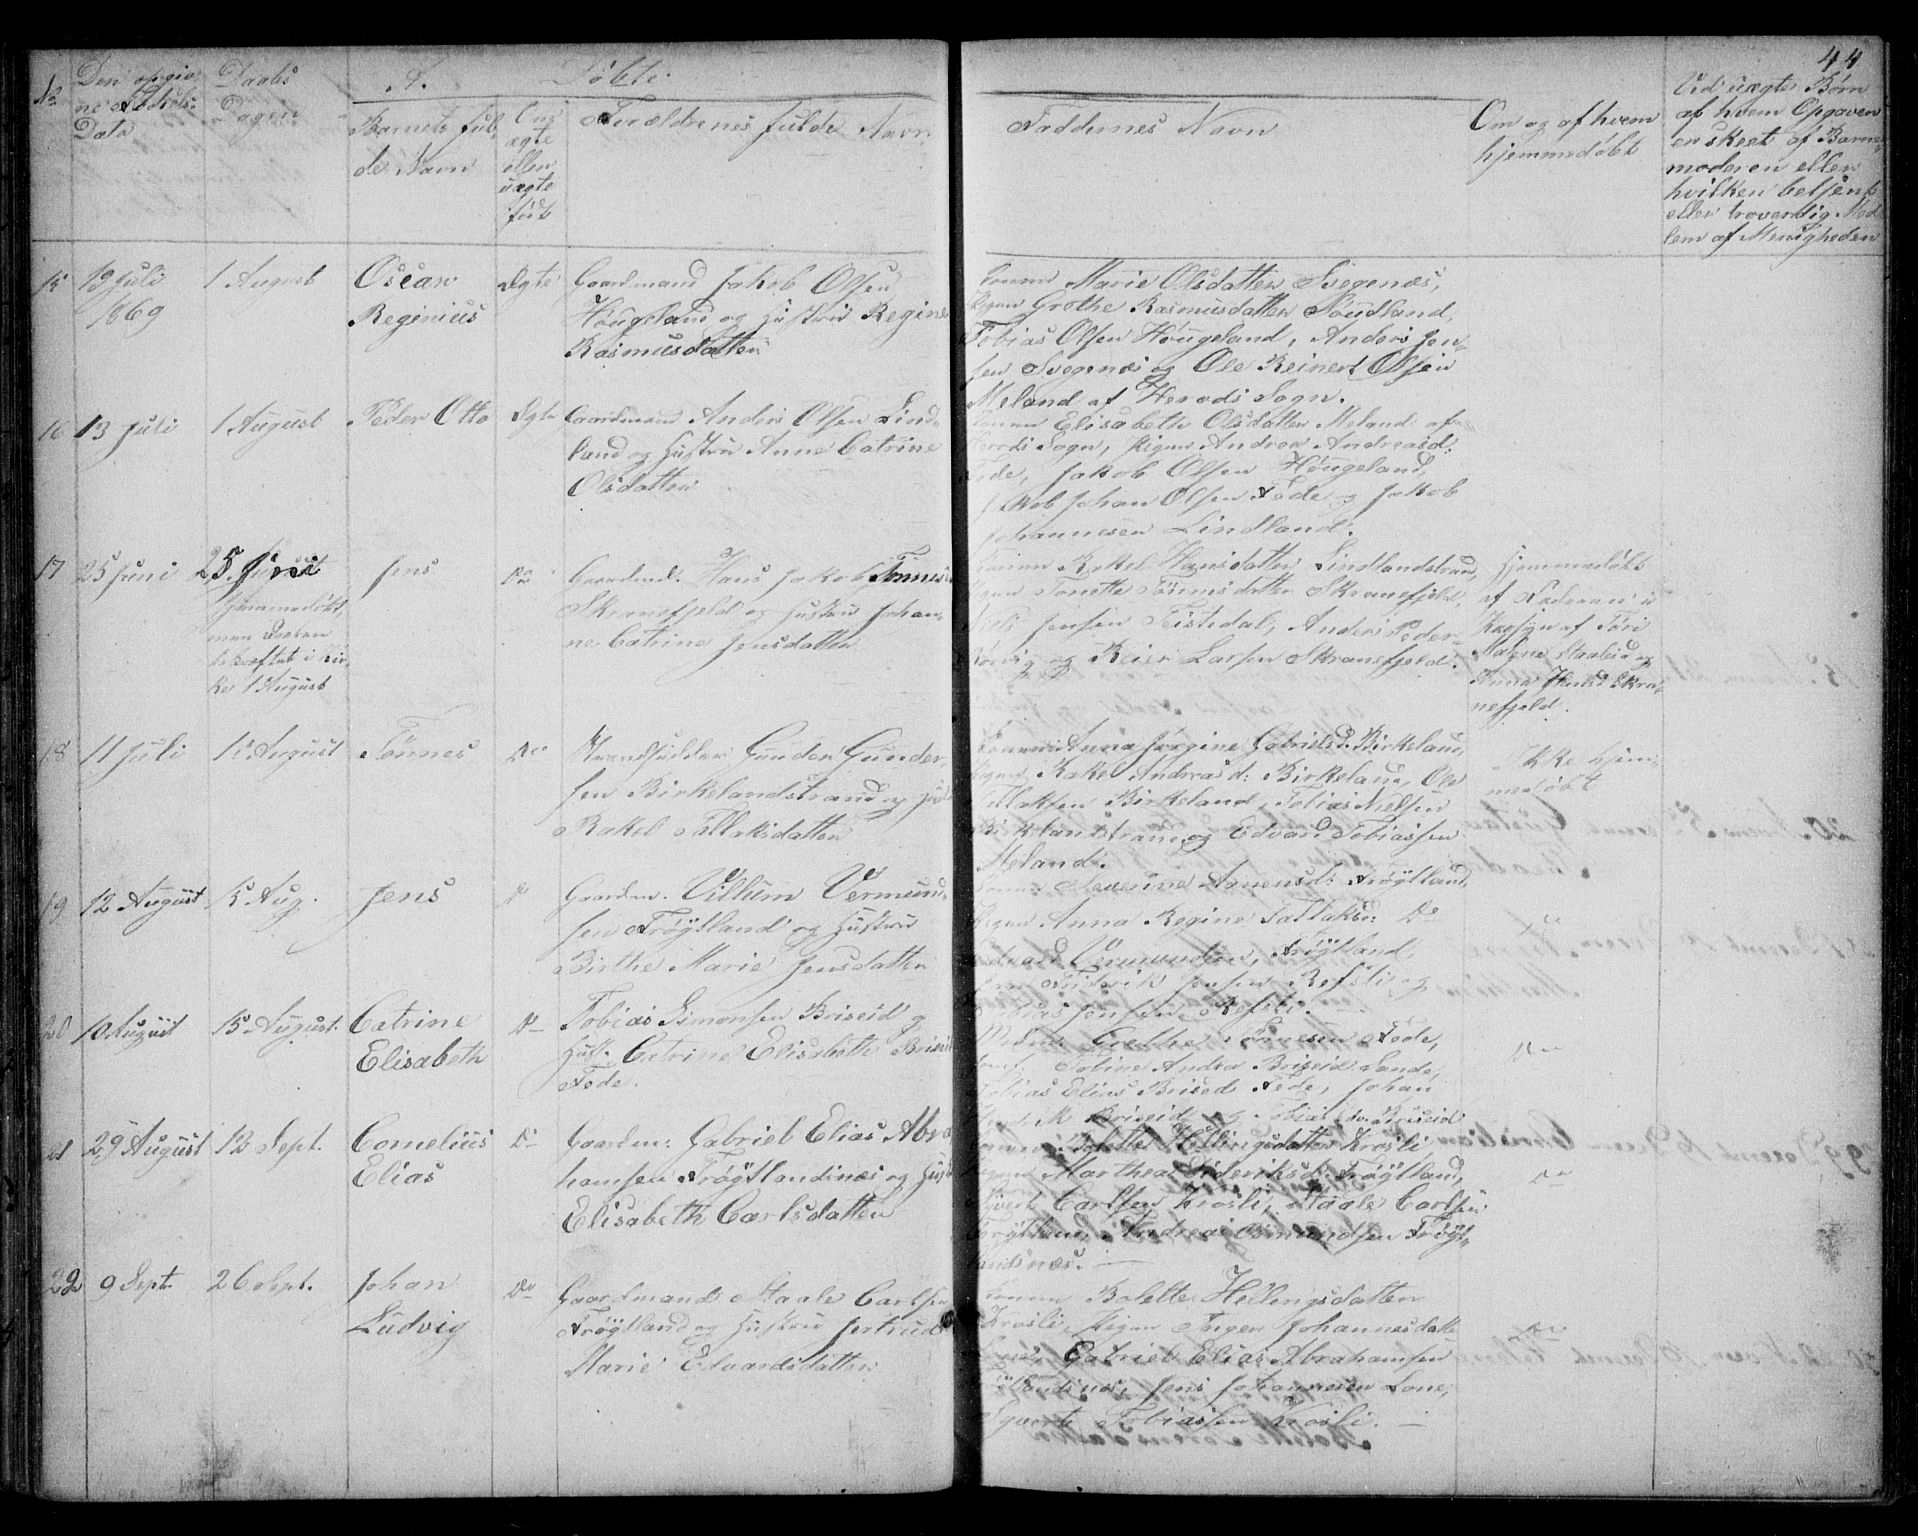 44
No
Den opgiv
ne Fødsels
Data
Daabs
Dagen
A.
Døbte.
Barnets ful-
de Navn
Om
ægte
eller
uægte
født
Forældrenes fulde Navn
Faddernes Navn
Om og af hvem
hjemmedøbt
Ved uægte Børn
af hvem Opgaven
er skeet af Barne-
moderen eller
hvilken betjent
eller troværdig Med
lem af Menigheden
15
19 Juli
1869
1 August
Oscar
Reginius
Ægte
Gaardmand Jakob Olsen
Høugeland og Hustru Regine
Rasmusdatter
Marie Olsdatter Svegenæs,
Grethe Rasmusdatter Søudland,
Tobias Olsen Høugeland, Anders Jen-
sen Svegenæs og Ole Reinert Olsen
Meland af Herods Sogn.
16
13 Juli
1 August
Peder Otto
Ægte
Gaardmand Anders Olsen Lind-
land og Hustru Anne Catrine
Olsdatter
Elisabeth Olsdatter Meland af
Herods Sogn, Pigen Andrea Andreasd:
Fede, Jakob Olsen Høugeland,
Jakob Johan Olsen Fede og Jakob
Johannesen Lindland.
17
25 Juni
25 Juni
hjemmedøbt,
men Daaben
bekræftet i Kir-
ken 1 August
Jens
Do
Gaardmd: Hans Jakob Tønnes
Skranefjeld og Hustru Johan-
ne Catrine Jensdatter
Rakel Hansdatter Lindlandstrand,
Tonette Tønnisdatter Skranefjeld,
Niels Jensen Feistedal, Anders Peder-
og Reier Larsen Skranefjeld.
Hjemmedøbt
af Faderen i
Paasyn af Tøri
Malene Staalesd og
Anna Hansd Skra-
nefjeld.
18
11 Juli
1 August
Tønnes
Do
Strandsidder Gunder Gunder-
sen Birkelandstrand og Hust
Rakel Tallaksdatter
Anna Jørgine Gabrielsd: Birkeland,
Pigen Rakel Andreasd: Birkeland, Ole
Tallaksen Birkeland, Tobias Nielsen
Birkelandstrand og Edvard Tobiassen
Meland.
Ikke hjem-
medøbt
19
12 August
15 Aug.
Jens
Do
Gaardm. Villum Vermund-
sen Frøytland og Hustru
Birthe Marie Jensdatter
Severine Arnensd: Frøytland,
Pigen Anna Regine Tallaksd: Do
Edvard Vermundsen, Frøytland,
Fiderik Jensen Refsti og
Tobias Jensen Refsti.
Do
20
10 August
15 August.
Catrine
Elisabeth
Do
Tobias Simonsen Briseid og
Hust. Catrine Elisabeth Briseid
Fede.
Grethe Tønnesen Fede,
Tobine Andrea Briseid Sande,
Tobias Elias Briseid Fede, Johan
Hendrik Briseid og Tobias Briseid
Do
21
29 August
12 Sept.
Cornelius
Elias
Do
Gaardm: Gabriel Elias Abra
hamsen Frøytlandsnæs og Hust
Elisabeth Carlsdatter
Bolette Hellingsdatter Krosli,
Pigen Marthea Dideriksd: Frøytland,
Syvert Carlsen Krosli, Staale Carlsen
Frøytland, Andreas Osmundsen Frøyt-
landsnæs.
Do
22
9 Sept.
26 Sept.
Johan
Ludvig
Do
Gaardmand Staale Carlsen
Frøytland og Hustru Jertrud
Marie Edvardsdatter
Konen Bolette Hellingsdatter
Krosli, Pigen Inger Johannesdatte
Gabriel Elias Abrahamsen
Jens Johannesen Lone,
Syvert Tobiassen Krosli.
Do